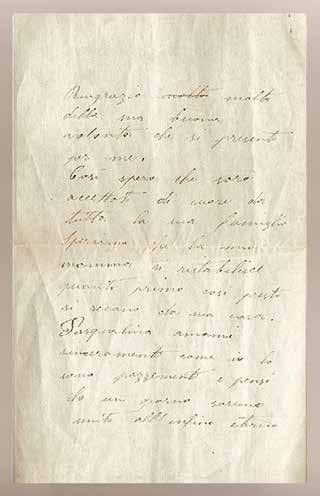 Ringrazio molto molto
della sua buona
volontà che si presenti
per me.
Così spero che sarò
accettati di cuore da
tutta la sua famiglia
Speriamo che la mia
mamma si ristabilisce
quanto primo così presto
si recano da sua casa.
Pasqualina amami
sinceramenti come io lo
sono pazzementi e pensi
da un giorno saremo
uniti all'infino eterno